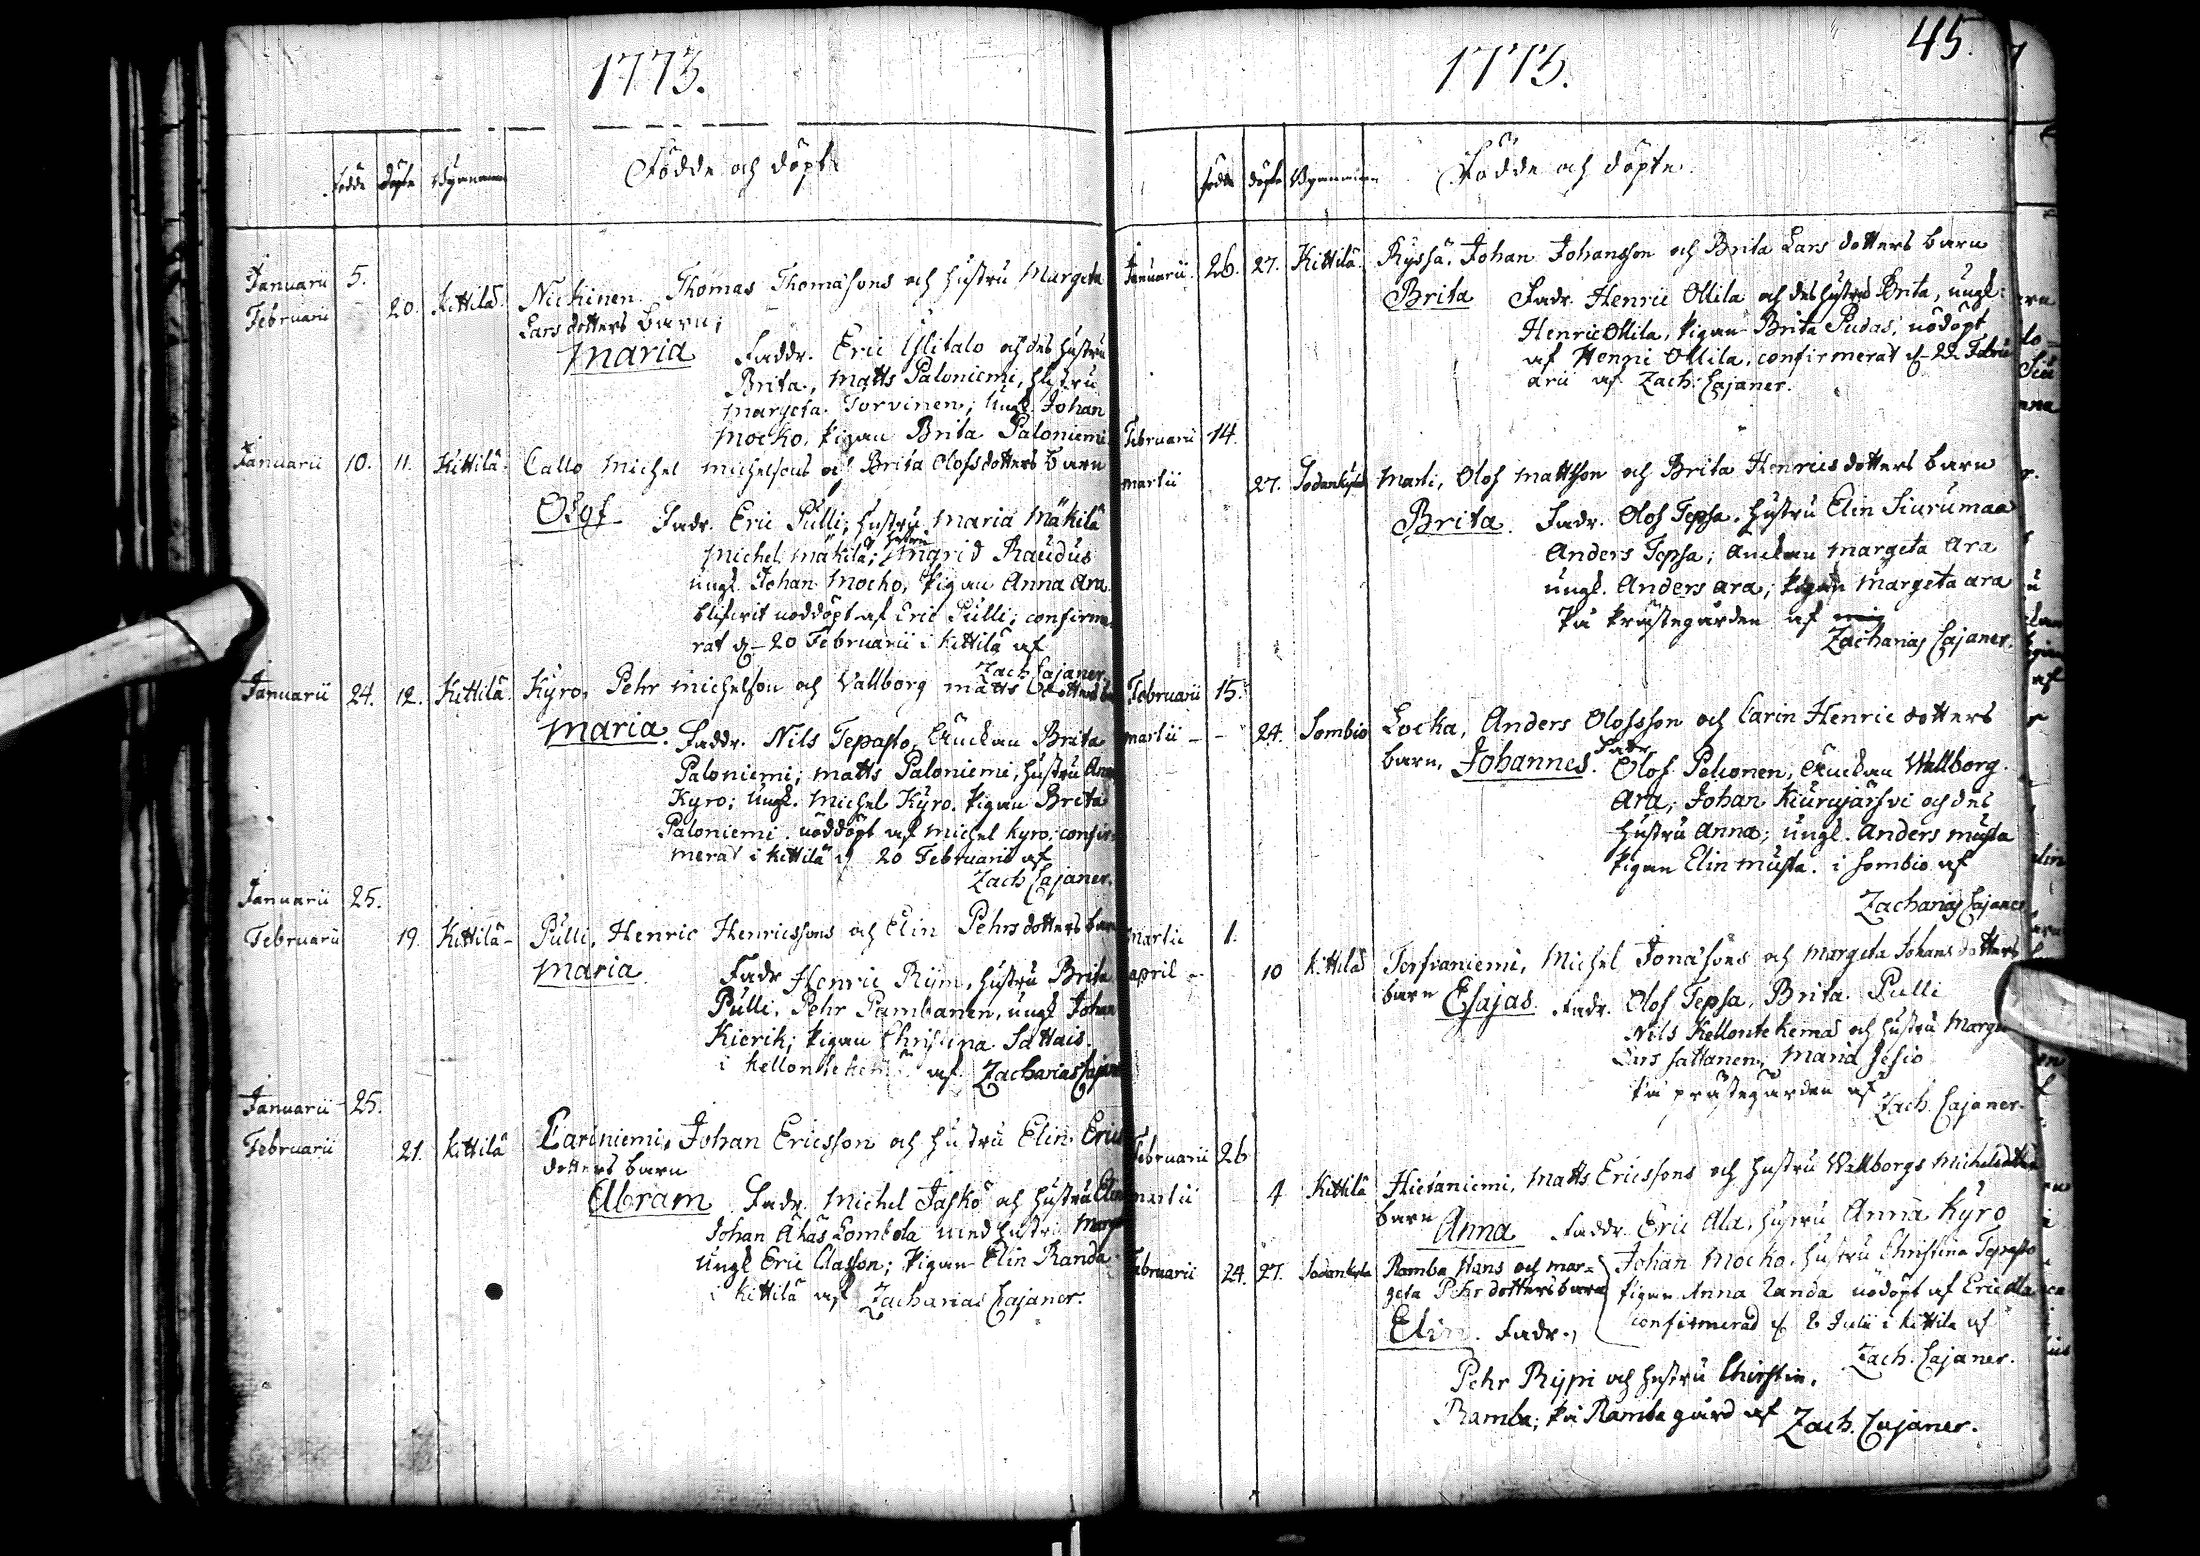 1773.
födde döpte Bynamnen Födde och döpte
Januarii 5.
Februarii 20. Kittilä. Nickinen Thomas Thomasons och hustru Margeta
Lars dotters barn;
Maria Faddr. Eric Ylitalo och des hustru
Brita, Matts Paloniemi, hustru
Margeta Torvinen; Ungk. Johan
Mocko, pigan Brita Paloniemi
Januarii 10. 11. Kittilä. Callo Michel Michelsons och Brita Olofsdotters barn
Olof Fadr. Eric Pulli; hustru Maria Mäkilä
Michel Mäkilä; hustru Ingrid Raudus
ungk. Johan Mocko, pigan Anna Ara
blifvit nöddöpt af Eric Pulli; confirme-
rat d. 20 Februarii i Kittilä af
Zach Cajaner.
Januarii 24. 12. Kittilä. Kyro, Pehr Michelson och Vallborg Matts dotters
Maria. Faddr. Nils Tepasto, Änckan Brita
Paloniemi; Matts Paloniemi, hustru Anna
Kyro; Ungk. Michel Kyro. pigan Brita
Paloniemi. nöddöpt af Michel Kyro; confir-
merat i Kittilä d. 20 Februarii af
Zach Cajaner.
Januarii 25.
Februarii 19. Kittilä - Pulli, Henric Henricssons och Elin Pehrsdotters barn
Maria. Fadr Henric Rijm, hustru Brita
Pulli. Pehr Pambanen, ungk Johan
Kierik; pigan Christina Sattais.
i Kellontekemä af Zacharias Cajaner
Januarii 25.
Februarii 21. Kittilä Lariniemi, Johan Ericsson och hustru Elin Erics
dotters barn
Abram Fadr. Michel Jasko och hustru
Johan Äkäs Lombola med hustru Marg
Ungk Eric Classon; pigan Elin Randa
i Kittilä af Zacharias Cajaner.
45.
1773.
födde döpte Bynamnen Födde och döpte.
Januarii. 26. 27. Kittilä. Ryssä. Johan Johansson och Brita Lars dotters barn
Brita Fadr. Henric Ollila och des hustru Brita, ungk:
Henric Ollila, pigan Brita Pudas; nödöpt
af Henric Ollila, confirmerat d. 22. Febru
arii af Zach: Cajaner.
Februarii 14.
Martii 27. Sodankylä Marti, Olof Mattsson och Brita Henricsdotters barn
Brita. Fadr. Olof Tepsa. hustru Elin Siurumaa
Anders Tepsa; Änckan Margeta Ara
ungk. Anders Ara; pigan Margeta Ara
på Prästegården af mig
Zacharias Cajaner.
Februarii 15.
Martii - - 24. Sombio Locka, Anders Olofsson och Carin Henricdotters
barn, Johannes. Fadr Olof Pelconen, Änckan Wallborg.
Ara, Johan Kiurujärfvi och des
hustru Anna; ungk. Anders Musta
pigan Elin Musta. i Sombio af
Zacharias Cajaner
Martii 1.
april - 10 Kittilä Torfvaniemi, Michel Jonäsons och Margeta Johans dotters
barn Esajas. Fadr. Olof Tepsa, Brita Pulli
Nils Kellontekemä och hustru Marge
Lars Sattanen, Maria Jesio
på prästegården af
Zach. Cajaner.
Februarii 26
Martii 4 Kittilä Hietaniemi, Matts Ericssons och hustru Wallborgs Michelsdotters
barn Anna Faddr. Eric Ala, hustru Anna Kyro
Johan Mocko, hustru Christina Tepasto
pigan Anna Randa nödöpt af Eric Ala
confirmerad d. 8 Julii i Kittilä af
Zach. Cajaner.
Februarii 24. 27. Sodankylä Ramba Hans och Mar-
geta Pehrdotters barn
Elin. Fadr.,
Pehr Rijpi och hustru Christin.
Ramba; på Ramba gård af Zach. Cajaner.